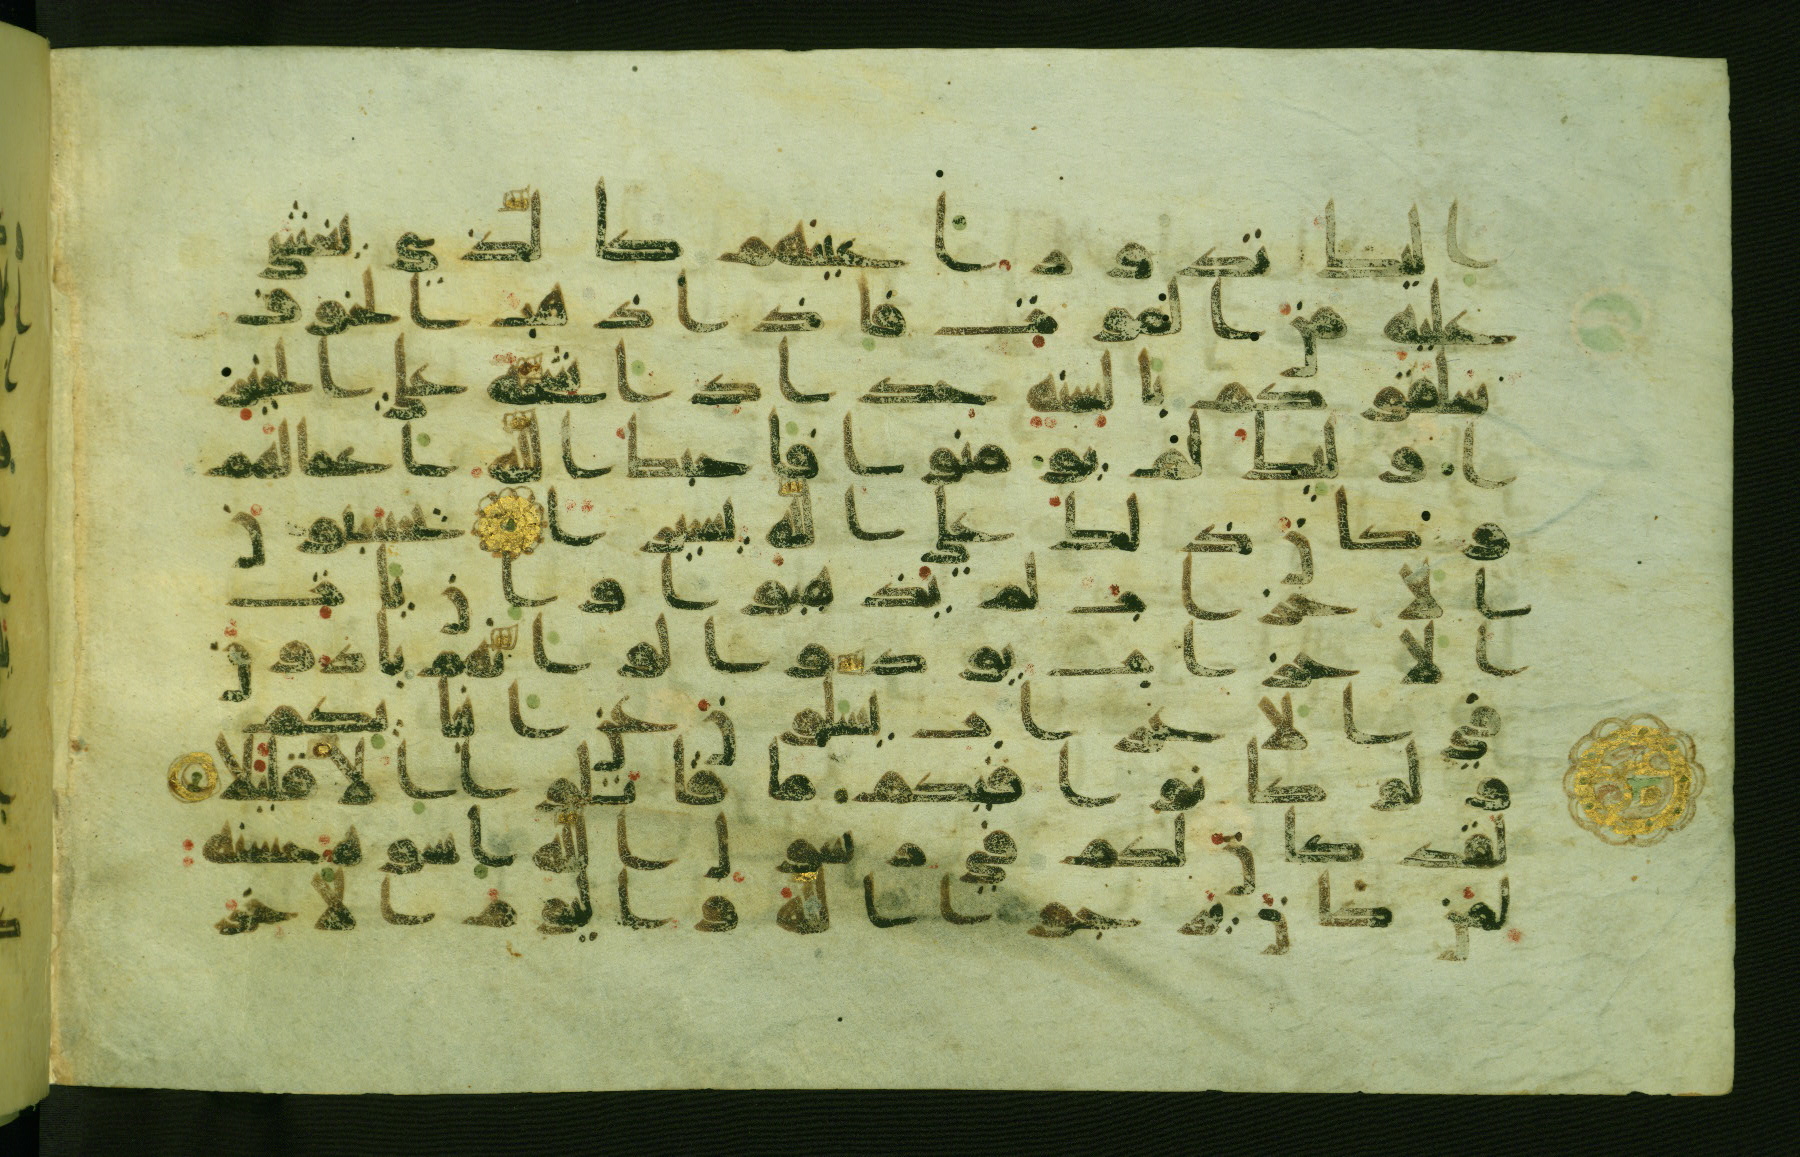 اليك تدور اعينهم كالذي يغشي
عليه من الموت فاذا ذهب الخوف
سلقوكم بالسنه حداد اشحه علي الخير
اوليك لم يومنوا فاحبط الله اعمالهم
وكان ذلك علي الله يسيرا يحسبون
الاحزاب لم يذهبوا وان يات
الاحزاب يودوا لو انهم بادون
في الاعراب يسلون عن انبايكم
ولو كانوا فيكم ما قاتلوا الا قليلا
لقد كان لكم في رسول الله اسوه حسنه
لمن كان يرجوا الله واليوم الاخر